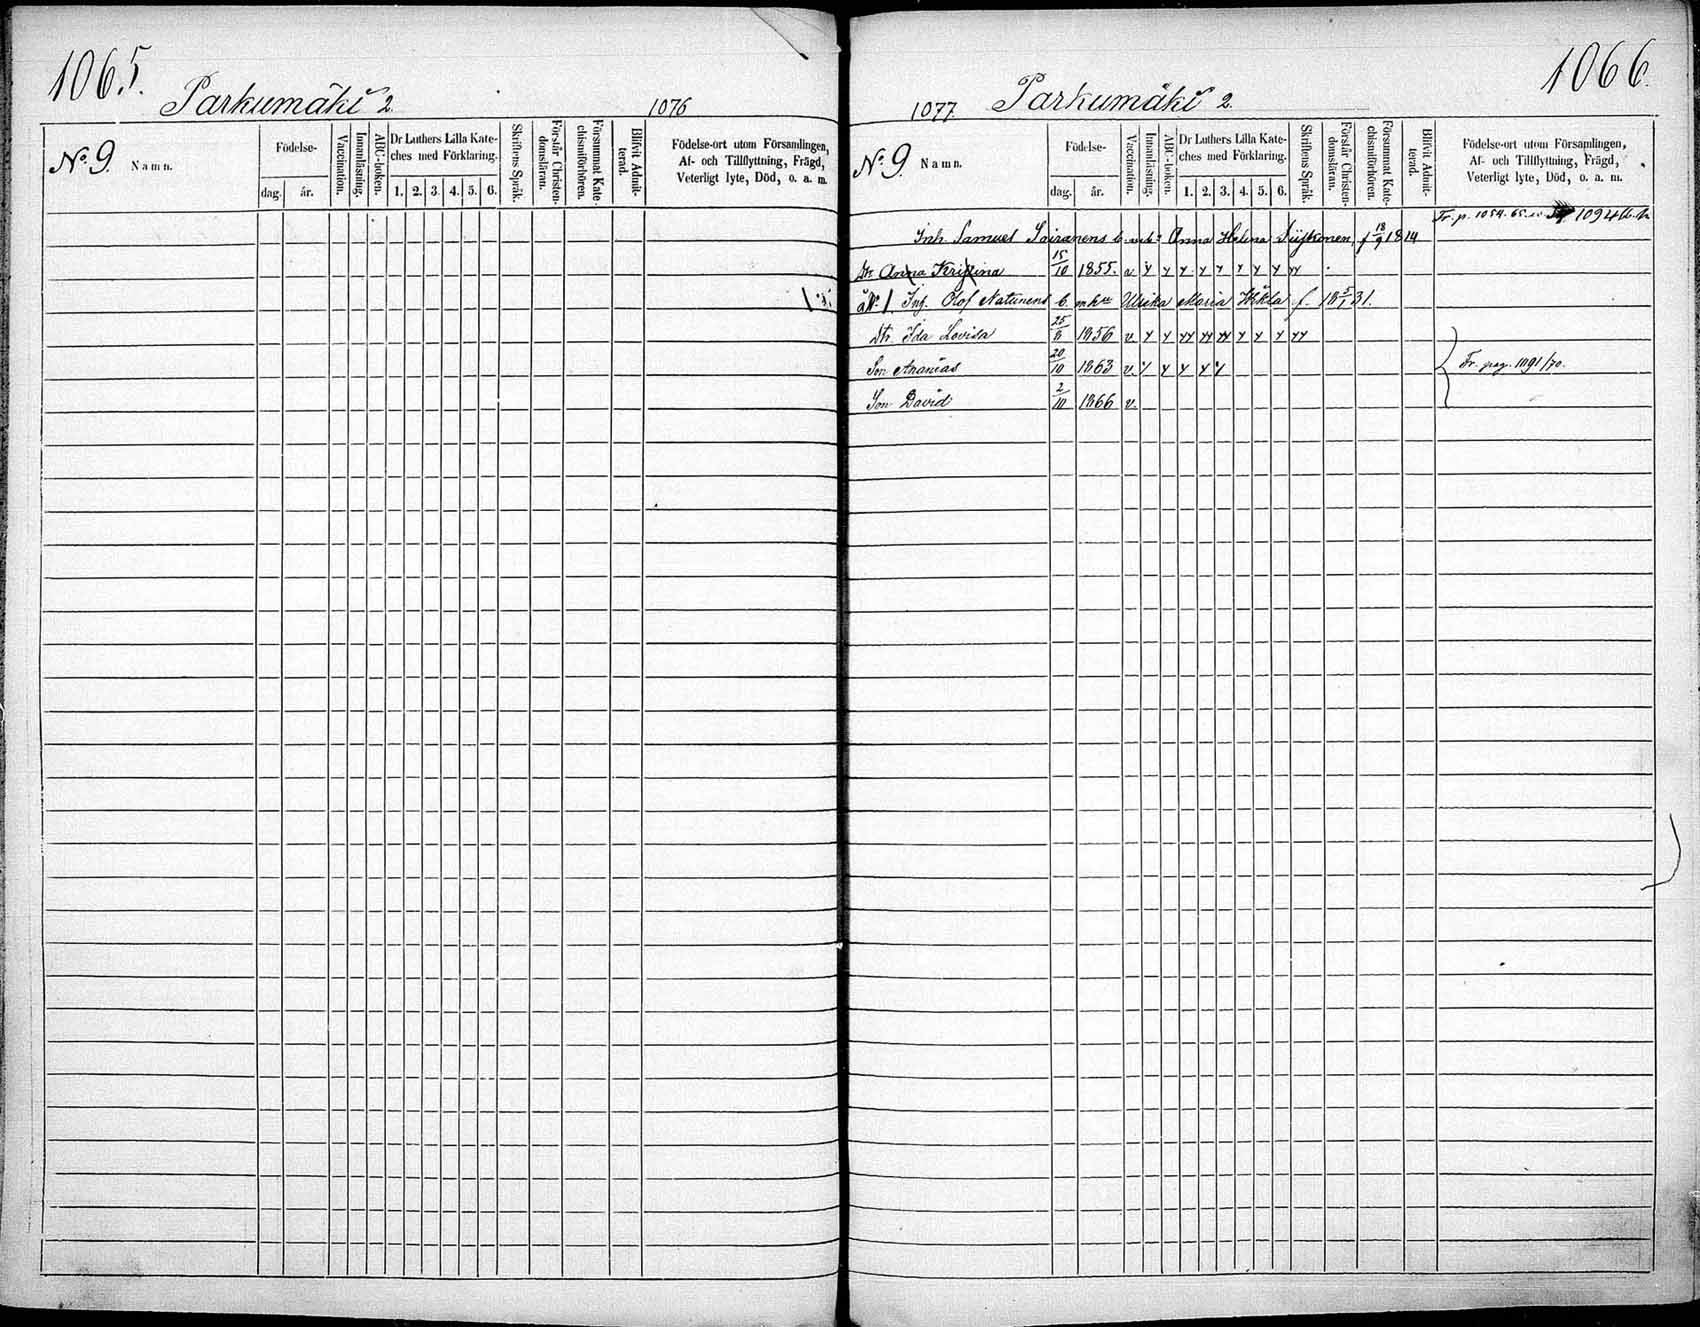 1065.
Parkumäki 2.
1076
No. 9.
Namn.
Födelse-
dag.
år.
Vaccination.
Innanläsning.
ABC-boken.
Dr Luthers Lilla Kate-
ches med Förklaring.
1. 2. 3. 4. 5. 6.
Skriftens Språk.
Förstår Christen-
domsläran.
Försummat Kate-
chismiförhören.
Blifvit Admit-
terad.
Födelse-ort utom Församlingen,
Af- och Tillflyttning, Frägd,
Veterligt lyte, Död, o. a. m.
1066.
1077.
Parkumäki 2.
No. 9
Namn.
Födelse-
dag.
år.
Vaccination.
Innanläsning.
ABC-boken.
Dr Luthers Lilla Kate-
ches med Förklaring.
1. 2. 3. 4. 5. 6.
Skriftens Språk.
Förstår Christen-
domsläran.
Försummat Kate-
chismiförhören.
Blifvit Admit-
terad.
Födelse-ort utom Församlingen,
Af- och Tillflyttning, Frägd,
Veterligt lyte, Död, o. a. m.
Fr. p. 1054. 65. 1094
Inh. Samuel Sairanens Anna Helena f 18/9 1814
Dr. Anna Kristina 15/10 1855. v
No 1. Ing. Olof Natunens b. Ulrika Maria f. 18 5/1 31.
Dr. Ida Lovisa 25/8 1856 v
Son Ananias 20/10 1863 v. Fr. pag. 1191/70.
Son David 2/10 1866 v.